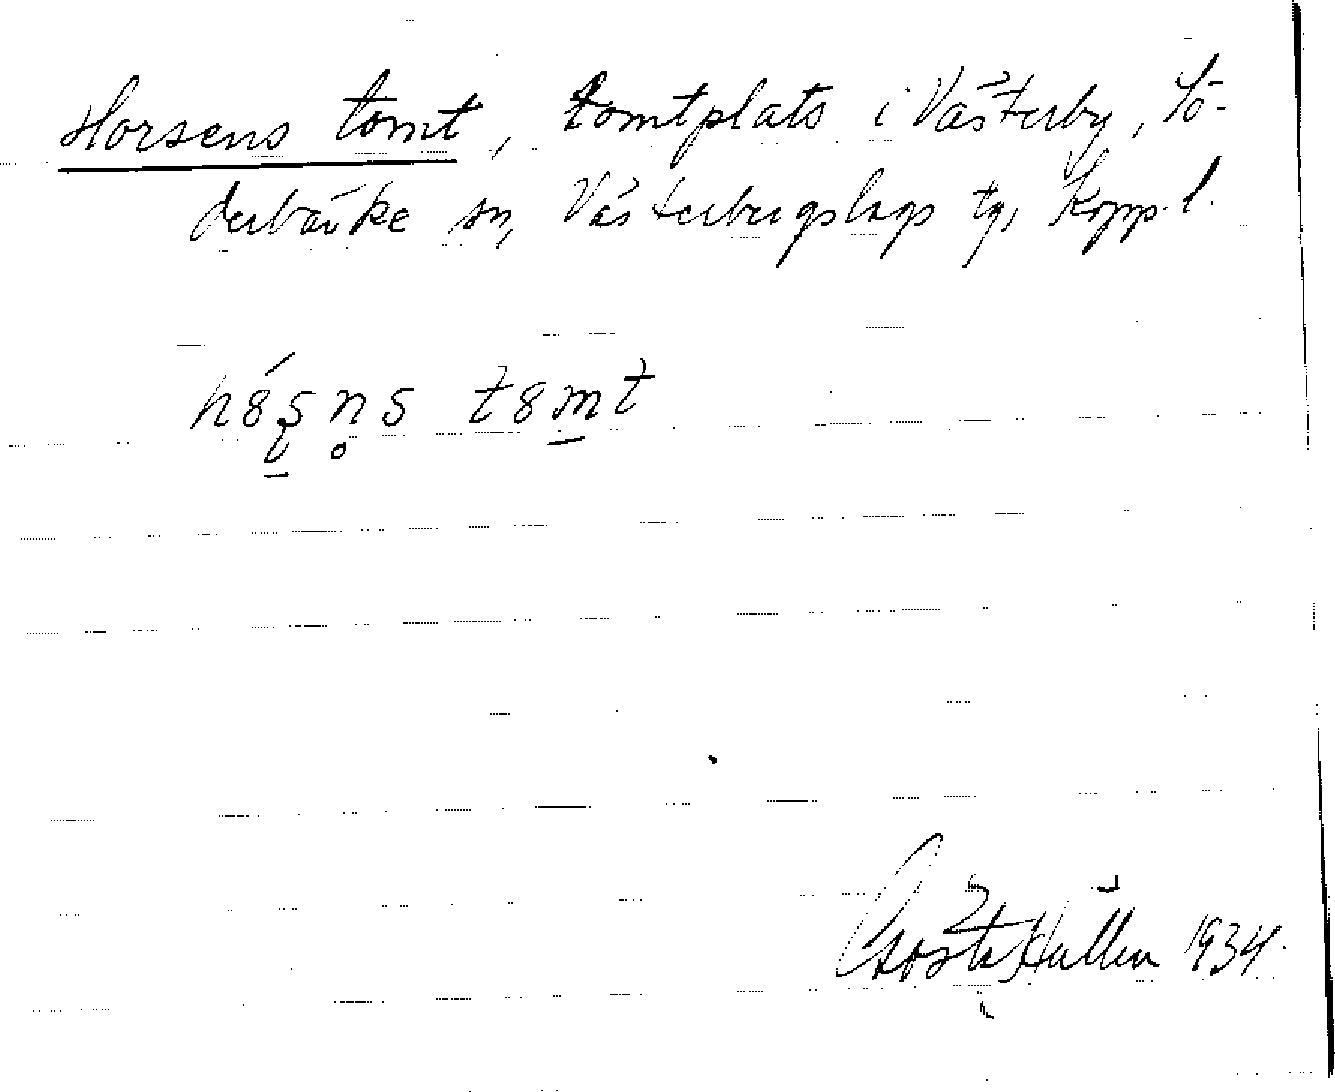 Horsens tomt, tomtplats i Västerby, Sö-
derbärke sn, Västerbergslags tg, Kopp. l.
hó̤ṣn̥s tȣm̲t
Gösta Hallén 1934.